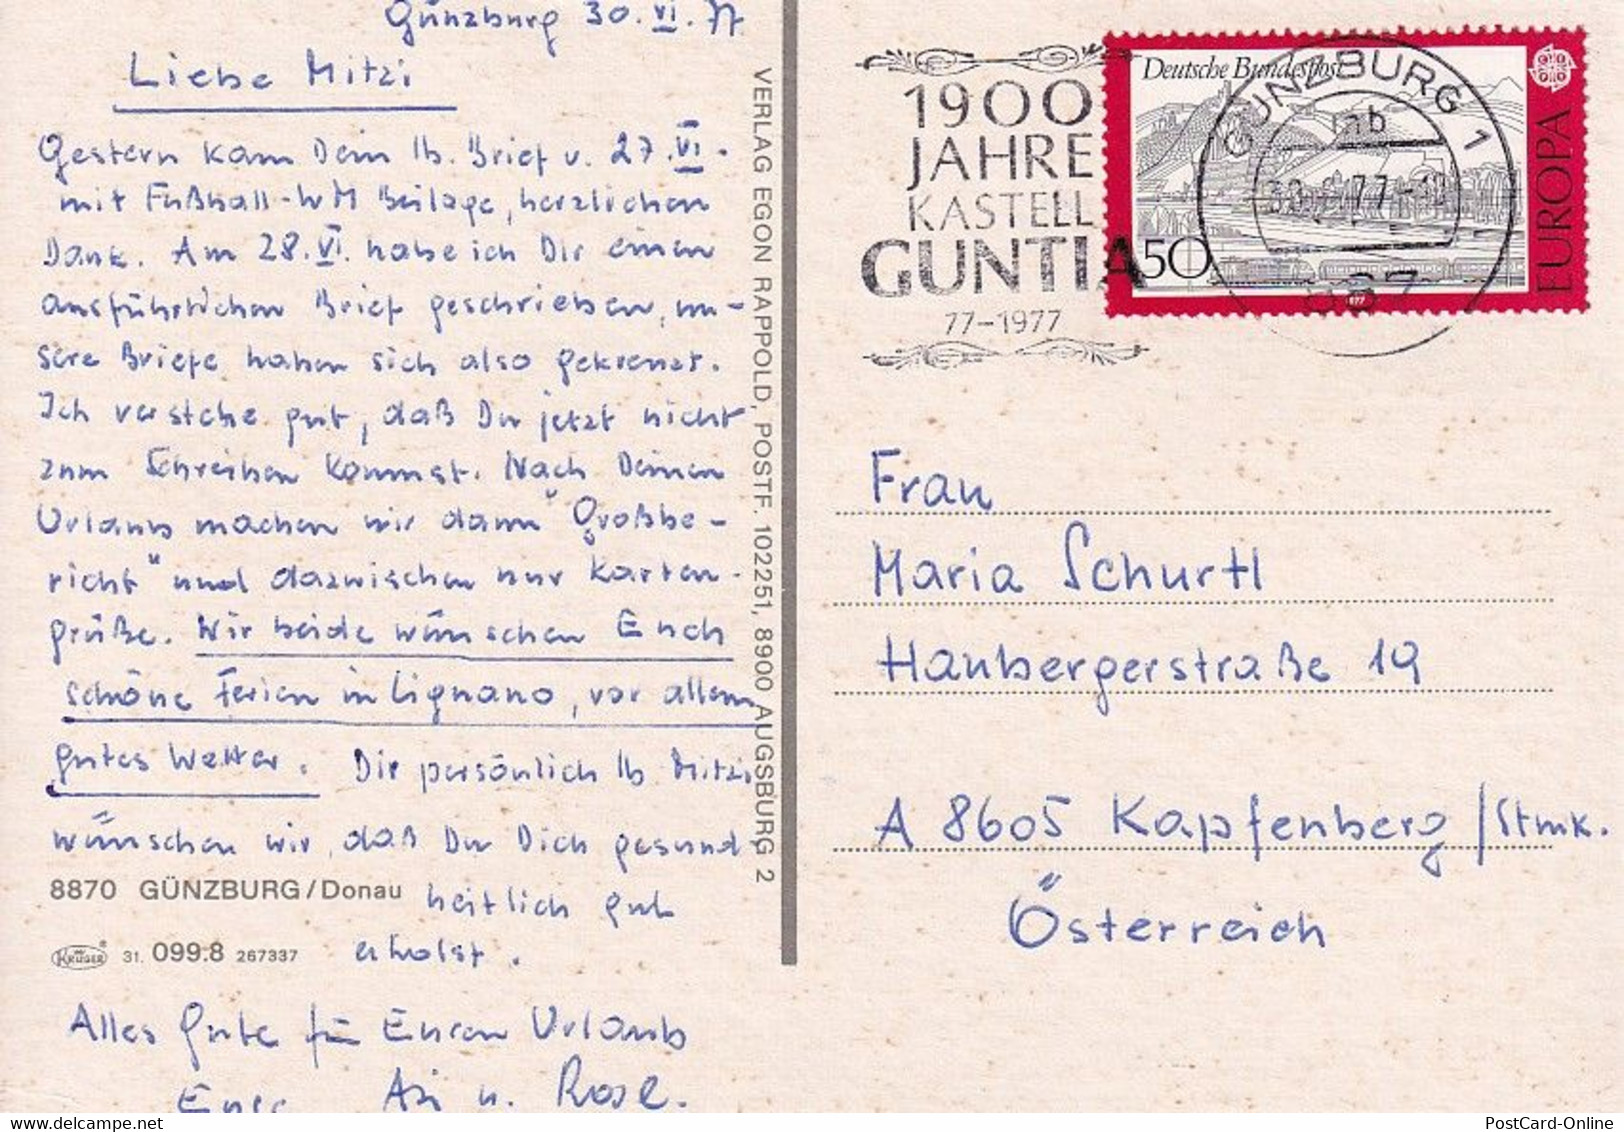 Günzburg 30. VI. 77
Liebe Mitzi
Gestern kam Dein lb. Brief v. 27. VI.
mit Fußball-WM Beilage, herzlichen
Dank. Am 28. VI. habe ich Dir einen
ausführlichen Brief geschrieben, un-
sere Briefe haben sich also gekreuzt.
Ich verstehe gut, daß Du jetzt nicht
zum Schreiben kommst. Nach Deinem
Urlaub machen wir dann "Großbe-
richt" und dazwischen nur Karten-
grüße. Wir beide wünschen Euch
schöne Ferien in Lignano, vor allem
gutes Wetter. Dir persönlich lb. Mitzi
wünschen wir, daß Du Dich gesund
8870 GÜNZBURG/Donau
heitlich gut
KRÜGER 31. 099.8 267337
erholst.
Alles Gute für Euren Urlaub
Eure u. Rosl.
VERLAG EGON RAPPOLD, POSTF. 102251, 8900 AUGSBURG 2
1900
JAHRE
KASTELL
GUNTIA
77-1977
Deutsche Bundespost
50
EUROPA
1977
GÜNZBURG 1
ab
887
Frau
Maria Schurtl
Haubergerstraße 19
A 8605 Kapfenberg /Stmk.
Österreich
PostCard-Online